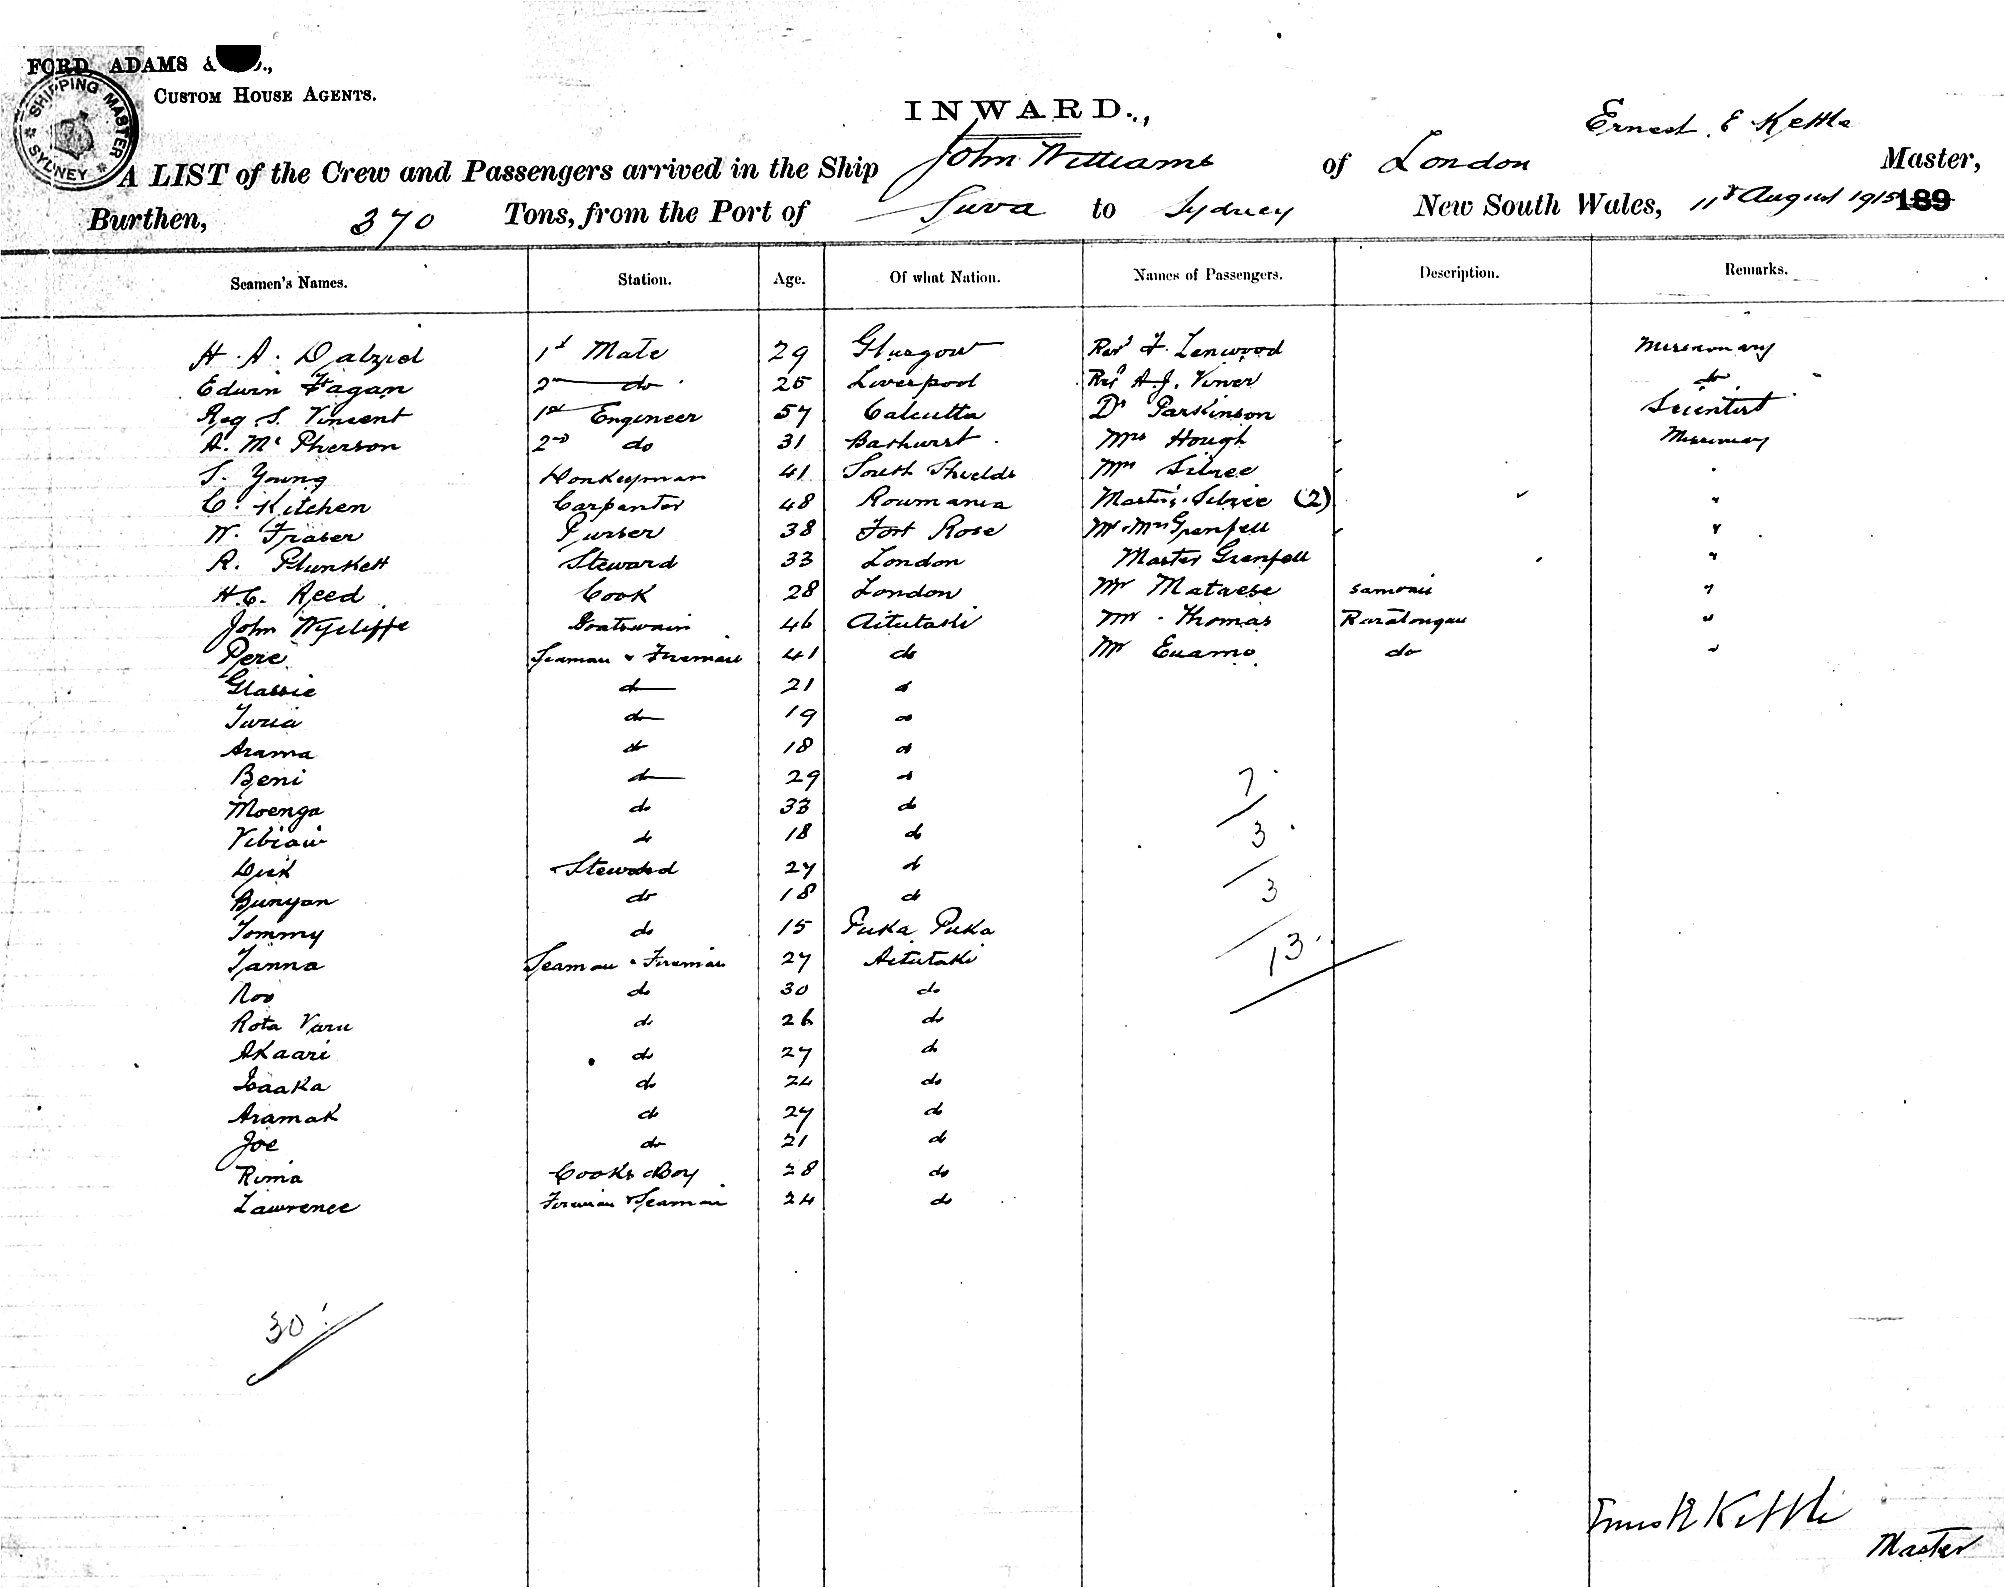 FORD, ADAMS &
CUSTOM HOUSE AGENTS.
SHIPPING MASTER
SYDNEY
INWARD.,
Ernest E Kettle
A LIST of the Crew and Passengers arrived in the Ship John Williams of London Master,
Burthen, 370 Tons, from the Port of Suva to Sydney New South Wales, 11th August 1915 189
Seamen's Names. Station. Age. Of what Nation. Names of Passengers. Description. Remarks.
H. A. Dalziel 1st Mate 29 Glasgow Revd F. Lenwood Missionary
Edwin Fagan 2nd do 25 Liverpool Revd A.J. Viner do
Reg S. Vincent 1st Engineer 57 Calcutta Dr Parkinson Scientist
A. McPherson 2nd do 31 Bathurst. Mrs Hough Missionary
S. Young Donkeyman 41 South Shields Mrs Silree "
C. Kitchen Carpenter 48 Roumania Masters Silree (2) "
W. Fraser Purser 38 Fort Rose Mr. Mrs Grenfell "
R. Plunkett Steward 33 London Master Grenfell "
H.C. Reed Cook 28 London Mr Mataese Samoan "
John Wycliffe Boatswain 46 Aitutaki Mr. Thomas Raratongan "
Pere Seaman & Fireman 41 do Mr Euamo do "
Glassie do 21 do
Turia do 19 do
Arama do 18 do
Beni do 29 do
Moenga do 33 do
do 18 do
Dick Steward 27 do
Bunyan do 18 do
Tommy do 15 Puka Puka
Tanna Seaman & Fireman 27 Aitutaki
Roo do 30 do
Rota Varu do 26 do
Akaari do 27 do
Isaaka do 24 do
Aramak do 27 do
Joe do 21 do
Rima Cooks Boy 28 do
Lawrence Fireman & Seaman 24 do
7
3
3
13
30
Ernest E Kettle
Master